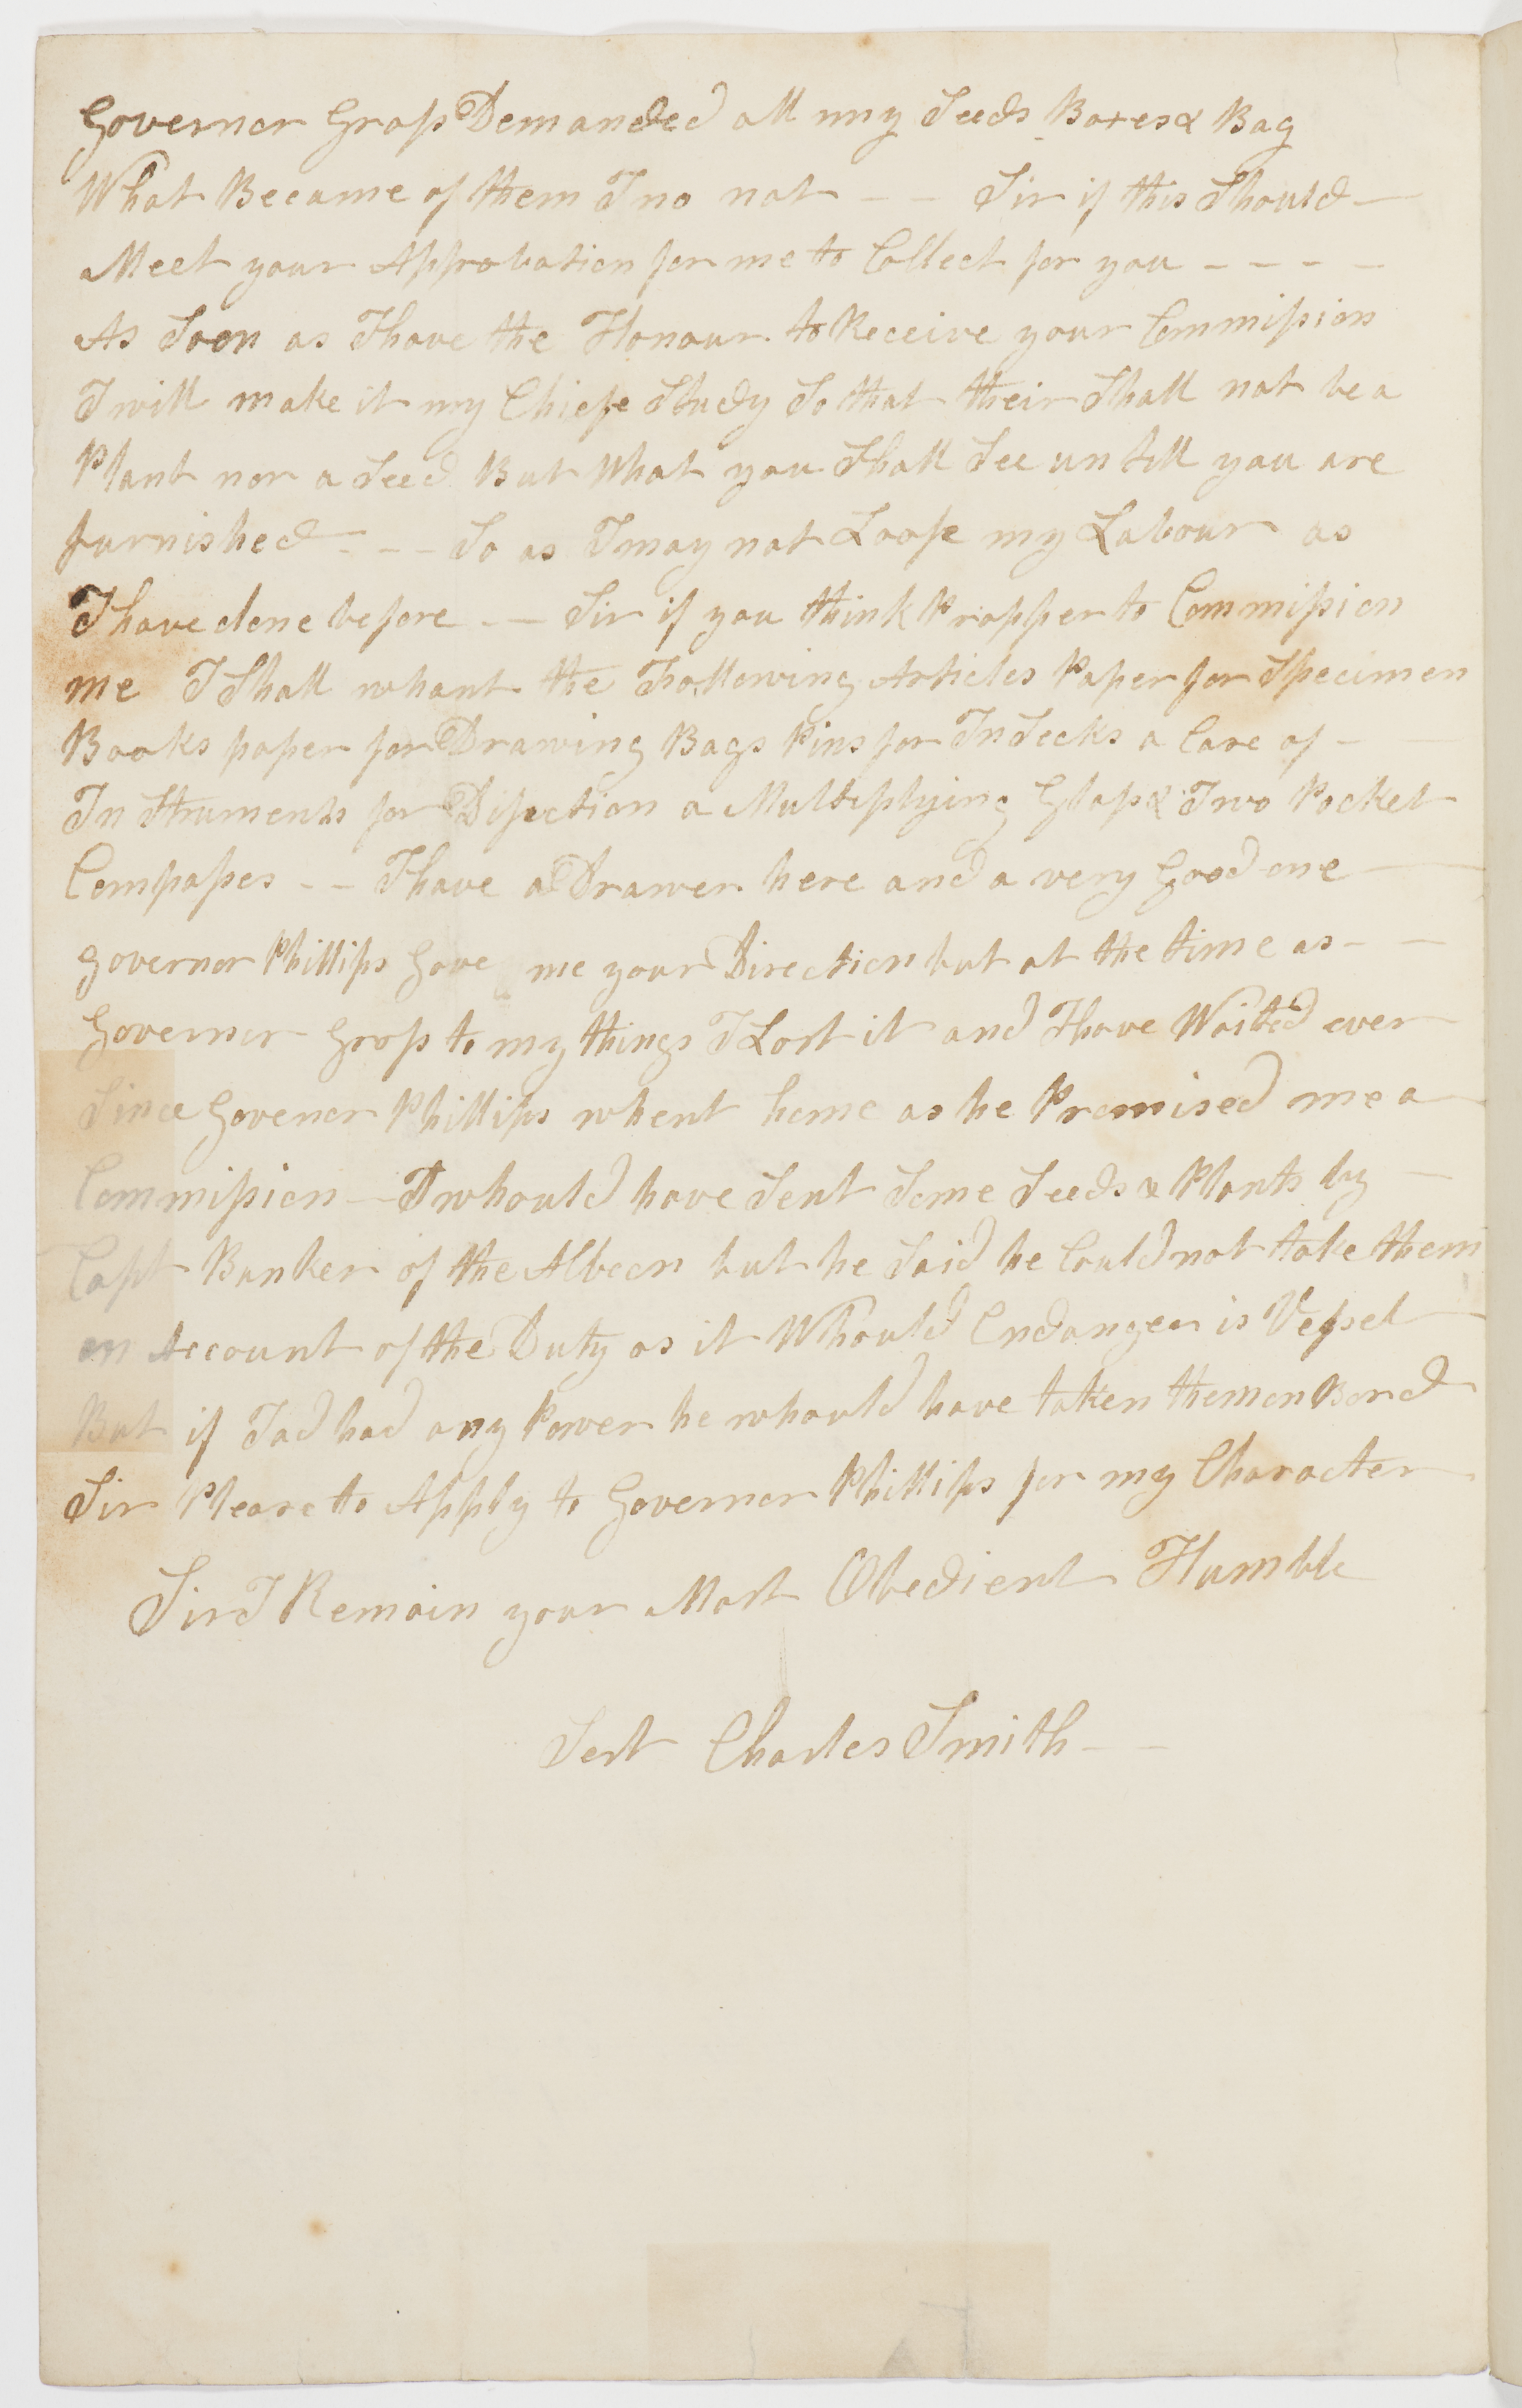 Governor Gross Demanded all my Seeds Boxes & Bag
What Became of them I no not - - Sir if this Should -
Meet your Approbation for me to Collect for you - - - -
As Soon as I have the Honour to Receive your Commission
I will make it my Chiefe Study So that their Shall not be a
Plant nor a Seed But What you Shall See untill you are
furnished - - - So as I may not Loose my Labour as
I have done before - - Sir if you think Propper to Commission
me I Shall whant the Following Articles Paper for Specimen
Books paper for Drawing Bags Pins for InSecks a Case of -
InStruments for Disection a Multiplying Glass & Two Pocket
Compasses - - I have a Drawer here and a very Good one
governor Phillips Gave me your Direction but at the time as - -
Governor Gross to my things I Lost it and I have Waited ever
Since Govenor Phillips whent home as he Promised me a
Commission - I whould have Sent Some Seeds & Plants by -
Capt Bunker of the Albeon but he Said he Could not take them
on Account of the Duty as it Whould Endanger is Vessel
But if I ad had any Power he whould have taken them on Bord
Sir Please to Apply to Governor Phillips for my Character
Sir I Remain your Most Obedient Humble
Sert Charles Smith - -